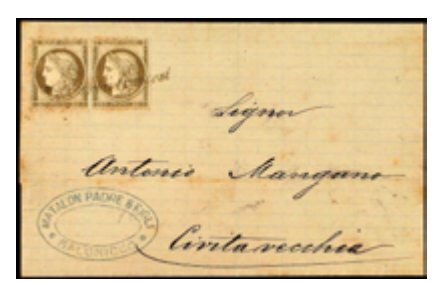 Signor
Antonio Mangano
Civitavecchia
MATALON PADRE & FIGLI
SALONICCO